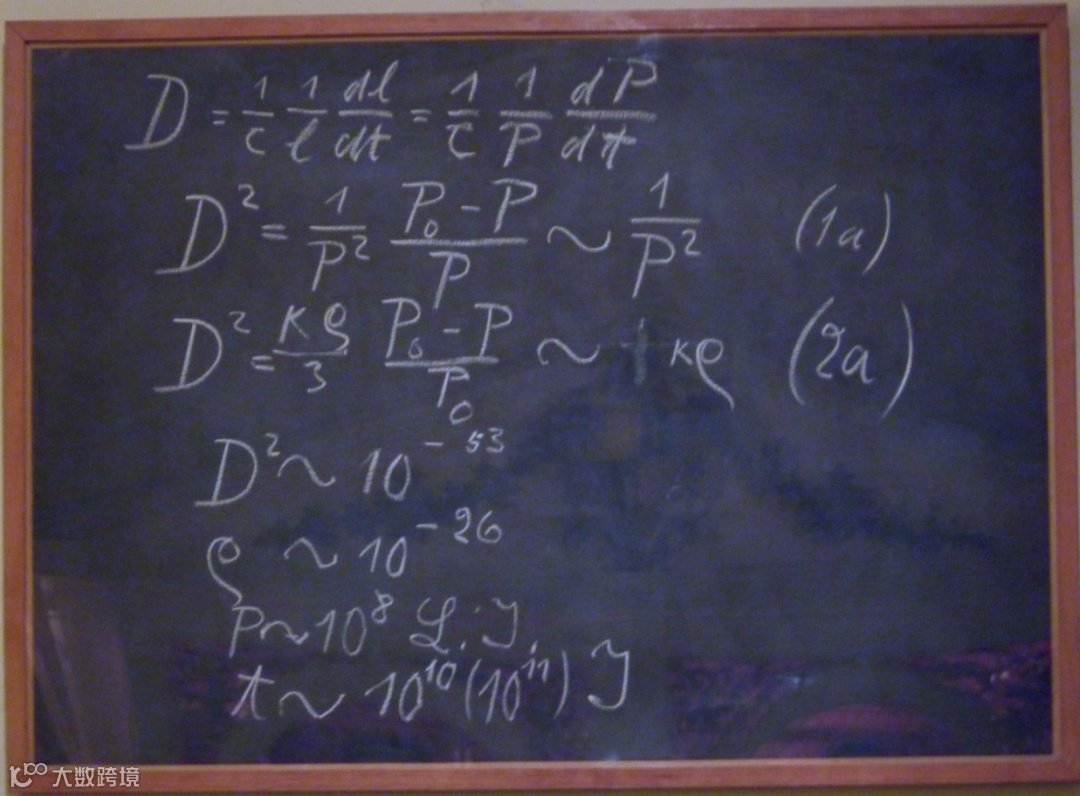 D = 1/c 1/l dl/dt = 1/c 1/P dP/dt
D² = 1/P² (P₀ − P)/P ~ 1/P² (1a)
D² = κρ/3 (P₀ − P)/P₀ ~ κρ (2a)
D² ~ 10⁻⁵³
ρ ~ 10⁻²⁶
P ~ 10⁸ L. J.
t ~ 10¹⁰ (10¹¹) J
大数跨境